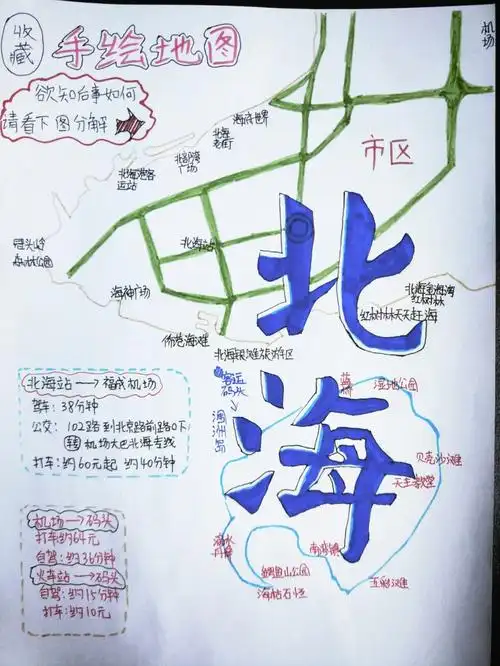 收藏
手绘地图
机场
欲知后事如何
请看下图分解
海底世界
北海老街
北部湾广场
市区
北海港客运站
北海站
冠头岭森林公园
海神广场
侨港海滩
北海金海湾红树林
红树林天天赶海
北海银滩旅游区
北海
客运码头
涠洲岛
湿地公园
贝壳沙滩
天主教堂
滴水丹屏
南湾镇
鳄鱼山公园
海枯石烂
五彩滩
北海站→福成机场
驾车:38分钟
公交:102路到北京路前路口下
转 机场大巴北海专线
打车:约60元起 约40分钟
机场→码头
打车约64元
自驾:约36分钟
火车站→码头
自驾:约15分钟
打车:约10元